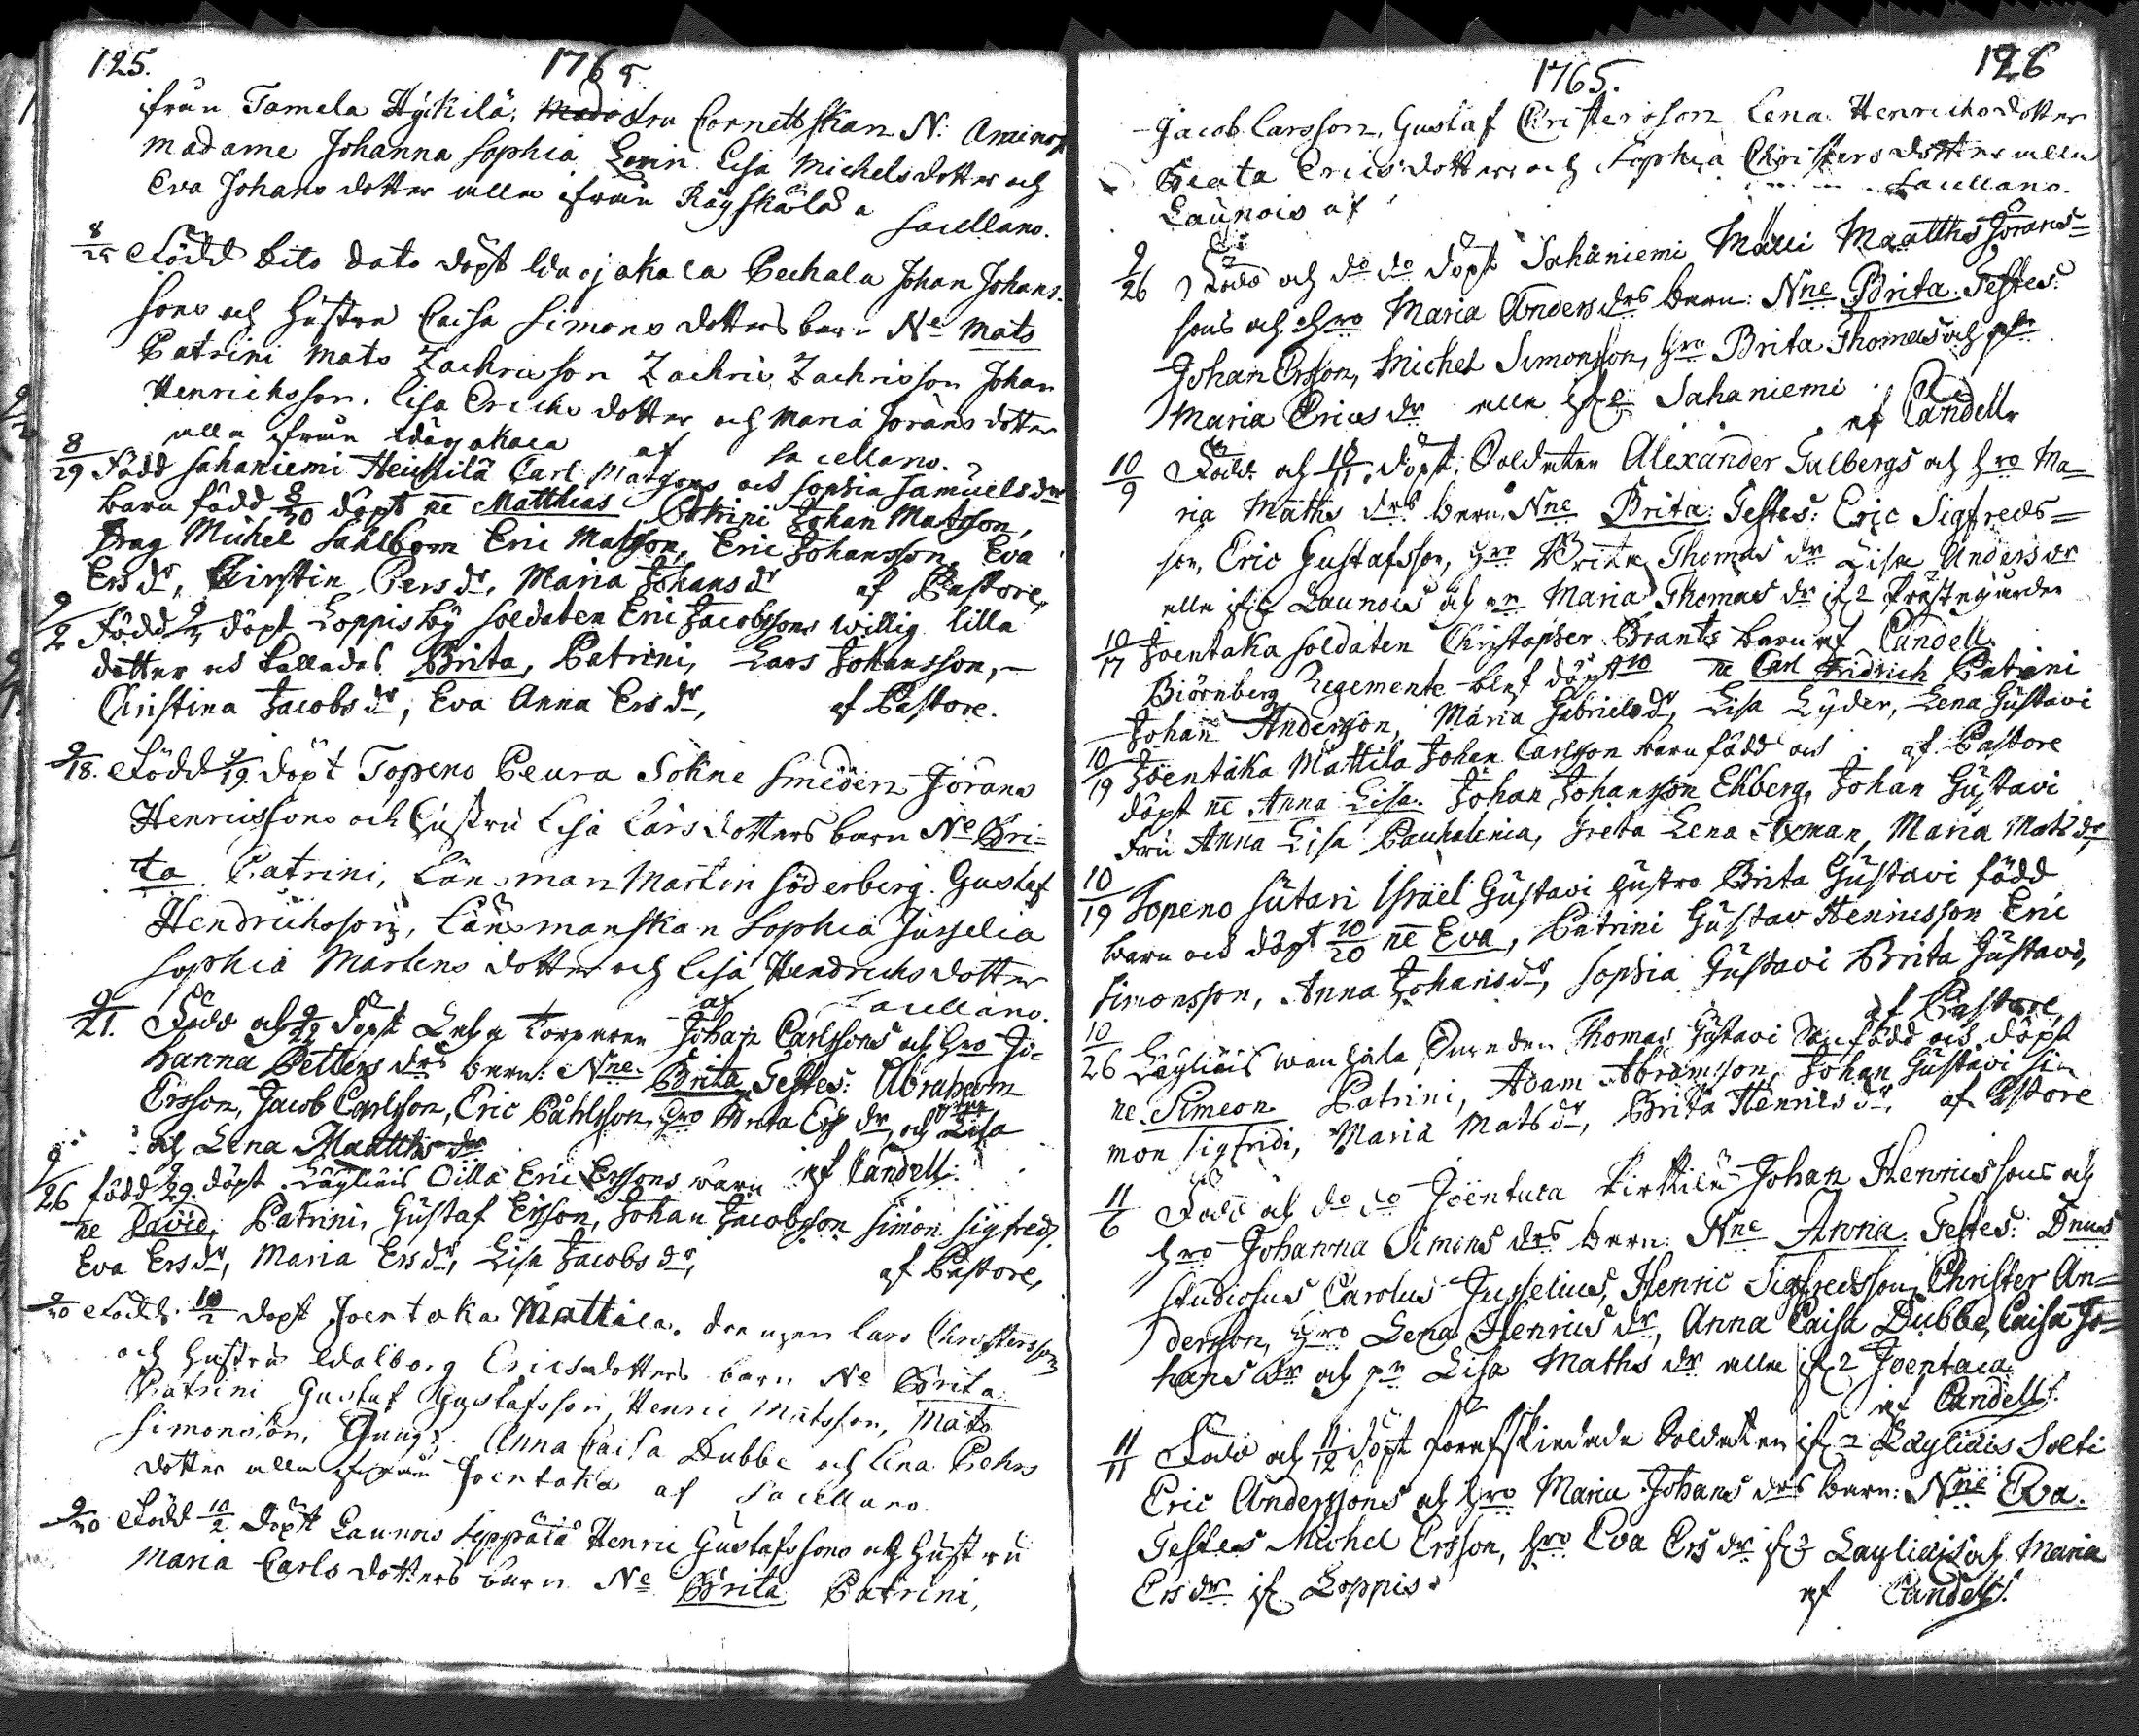 125. 1765
ifrån Tamela Hÿkilä, fru Cornettskan N: Aminof
Madame Johanna Sophia Levin Lisa Michelsdotter och
Eva Johans dotter alla ifrån Rägskälä a
Sacellano.
8/25 Född dito dato döpt Idäjakala Peckala Johan Johans-
sons och hustru Caisa Simons dotters barn Ne Mats
Patrini Mats Zachrisson Zachris Zachrisson Johan
Henrichsson, Lisa Erichs dotter och Maria Jörans dotter
alla ifrån af Sacellano.
8/29 Född Sahaniemi Heickilä Carl Matssons och Sophia Samuels dr
barn född 8/30 döpt ne Matthias Patrini Johan Matsson,
Drag Michel Sahlbom Eric Matsson, Eric Johansson, Eva
Ers dr, Kirstin Pers dr, Maria Johans dr af Pastore,
9/2 Född 9/3 döpt Loppis by Soldaten Eric Jacobssons Willig lilla
dotter och kallades Brita, Patrini, Lars Johansson,
Christina Jacobs dr, Eva Anna Ers dr, af Pastore.
9/18. Född 9/19. döpt Topeno Peura Sökne Smeden Jörans
Henricssons och hustru Lisa Lars dotters barn Ne Bri-
ta. Patrini, Länsman Martin Söderberg. Gustaf
Hendrichsson, Länsmanskan Sophia Jusselia
Sophia Martens dotter och Lisa Hendrichs dotter
af Sacellano.
9/21. Född och 9/22 döpt torparen Johan Carlssons och hro Jo-
hanna Petters drs barn: Nne. Brita Testes: Abraham
Ersson, Jacob Carlsson, Eric Påhlsson, hro Brita Ers dr, och Lisa
och Lena Matths dr
af Candell.
9/26 född 9/29. döpt Läyliäis Cilla Eric Erssons barn
ne David, Patrini, Gustaf Ersson, Johan Jacobsson Simon Sigfreds.
Eva Ers dr, Maria Ers dr, Lisa Jacobs dr, af Pastore,
9/30 Född 10/2 döpt Joentaka Mattila. drengen Lars Christersson
och hustru Walborg Ericsdotters barn Ne Brita
Patrini Gustaf Gustafsson, Henric Matsson, Mats
Simonsson, Anna Caisa Dubbe och Lena Pehrs
dotter alla ifrån Joentaka af Sacellano.
9/30 Född 10/2 döpt Launois Seppälä Henric Gustafssons och hustru
Maria Carls dotters barn Ne Brita Patrini,
1765. 126
Jacob Larsson, Gustaf Christersson Lena Henrichsdotter
Beata Ericsdotter och Sophia Christers dotter alla
Launois af Sacellano.
9/26 Född och do do döpt Sahaniemi Matths Jörans-
sons och hro Maria Anders drs barn: Nne Brita Testes:
Johan Ersson, Michel Simonsson, hro Brita Thomas och
Maria Erics dr alla Sahaniemi
af Candell
10/9 Född och döpt Soldaten Alexander Gulbergs och hro Ma-
ria Maths drs barn, Nne Brita: Testes: Eric Sigfreds=
son, Eric Gustafsson, hro Brita Thomas dr Lisa Anders dr
alla Launois och Maria Thomas dr
af Candell.
10/17 Joentaka Soldaten Christopher Brants barn
Biörnberg Regemente döpt ne Carl Fridrich Patrini
Johan Andersson, Maria Gabriels dr, Lisa Lyder, Lena Gustavi
af Pastore
10/19 Joentaka Mattila Johan Carlsson barn född och
döpt ne Anna Lisa. Johan Johansson Ekberg, Johan Gustavi
fru Anna Lisa Greta Lena Axman, Maria Mats dr
10/19 Topeno Sutari Israel Gustavi hustro Brita Gustavi född
barn och döpt 10/20 ne Eva, Patrini Gustav Henricsson Eric
Simonsson, Anna Johans dr, Sophia Gustavi Brita Gustavs,
af Pastore,
10/26 Läyliäis Thomas Gustavi Son född och döpt
ne. Simeon Patrini, Adam Abramsson, Johan Gustavi Si-
mon Sigfridi, Maria Mats dr, Brita Henrics dr. af Pastore
11/6 Född och do do Joentaca Johan Henricssons och
hro Johanna Simons drs barn: Nne Anna. Testes: Dnus
Studiosus Carolus Jusselius, Henric Sigfredsson, Christer An=
dersson, hro Lena Henrics dr, Anna Caisa Dubbe, Caisa Jo=
hans dr och Lisa Maths dr alla Joentaca
af Candell.
11/11 Född och 11/12 döpt förafskiedade Soldaten Läyliäis Solti
Eric Anderssons och hro Maria Johans drs barn: Nne Eva.
Testes Michel Ersson, hro Eva Ers dr Läyliäis och Maria
Ers dr Loppis
af Candell.